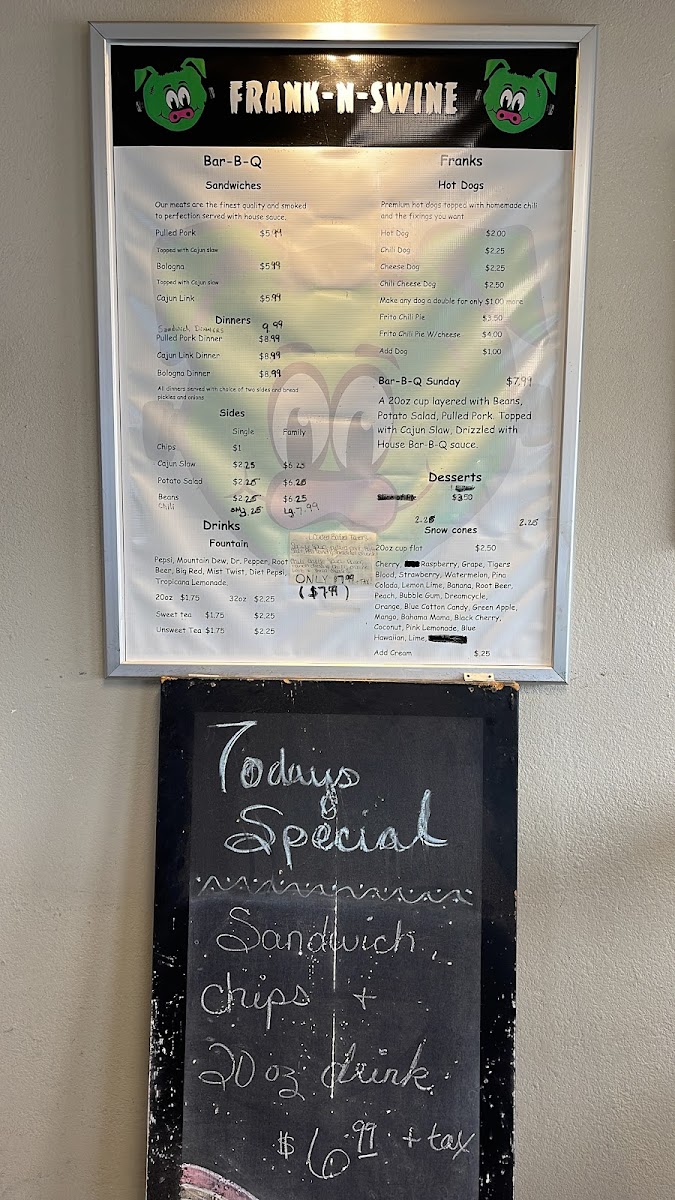 FRANK-N-SWINE
Bar-B-Q
Sandwiches
Our meats are the finest quality and smoked
to perfection served with house sauce.
Pulled Pork $5.99
Topped with Cajun slaw
Bologna $5.99
Topped with Cajun slaw
Cajun Link $5.99
Dinners
Sandwich Dinners 9.99
Pulled Pork Dinner $8.99
Cajun Link Dinner $8.99
Bologna Dinner $8.99
All dinners served with choice of two sides and bread
pickles and onions
Sides
Single Family
Chips $1
Cajun Slaw $2.25 $6.25
Potato Salad $2.25 $6.25
Beans $2.25 $6.25
Chili only 3.25 Lg. 7.99
Drinks
Fountain
Pepsi, Mountain Dew, Dr. Pepper, Root
Beer, Big Red, Mist Twist, Diet Pepsi,
Tropicana Lemonade.
20oz $1.75 32oz $2.25
Sweet tea $1.75 $2.25
Unsweet Tea $1.75 $2.25
ONLY $7.99
($7.99)
Franks
Hot Dogs
Premium hot dogs topped with homemade chili
and the fixings you want
Hot Dog $2.00
Chili Dog $2.25
Cheese Dog $2.25
Chili Cheese Dog $2.50
Make any dog a double for only $1.00 more
Frito Chili Pie $3.50
Frito Chili Pie W/cheese $4.00
Add Dog $1.00
Bar-B-Q Sunday $7.99
A 20oz cup layered with Beans,
Potato Salad, Pulled Pork. Topped
with Cajun Slaw, Drizzled with
House Bar-B-Q sauce.
Desserts
$3.50
2.25 2.25
Snow cones
20oz cup flat $2.50
Cherry, Raspberry, Grape, Tigers
Blood, Strawberry, Watermelon, Pina
Colada, Lemon Lime, Banana, Root Beer,
Peach, Bubble Gum, Dreamcycle,
Orange, Blue Cotton Candy, Green Apple,
Mango, Bahama Mama, Black Cherry,
Coconut, Pink Lemonade, Blue
Hawaiian, Lime,
Add Cream $.25
Todays
Special
Sandwich,
chips +
20 oz drink
$6.99 + tax